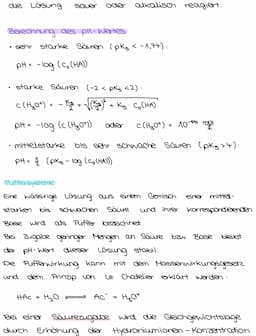 die Lösung sauer oder alkalisch reagiert.
Berechnung des pH-Wertes
• sehr starke Säuren (pKs < -1,74):
pH = -log (c₀(HA))
• starke Säuren (-2 < pKs < 2):
c(H₃O⁺) = -Ks/2 + √((Ks/2)² + Ks · c₀(HA))
pH = -log (c(H₃O⁺)) oder c(H₃O⁺) = 10^-pH mol/l
• mittelstarke bis sehr schwache Säuren (pKs > 4):
pH = ½ (pKs - log (c₀(HA)))
Puffersysteme
Eine wässrige Lösung aus einem Gemisch einer mittel-
starken bis schwachen Säure und ihrer korrespondierenden
Base wird als Puffer bezeichnet.
Bei Zugabe geringer Mengen an Säure bzw. Base bleibt
der pH-Wert dieser Lösung stabil.
Die Pufferwirkung kann mit dem Massenwirkungsgesetz
und dem Prinzip von Le Chatelier erklärt werden:
HAc + H₂O ⇌ Ac⁻ + H₃O⁺
Bei einer Säurezugabe wird die Gleichgewichtslage
durch Erhöhung der Hydroniumionen-Konzentration